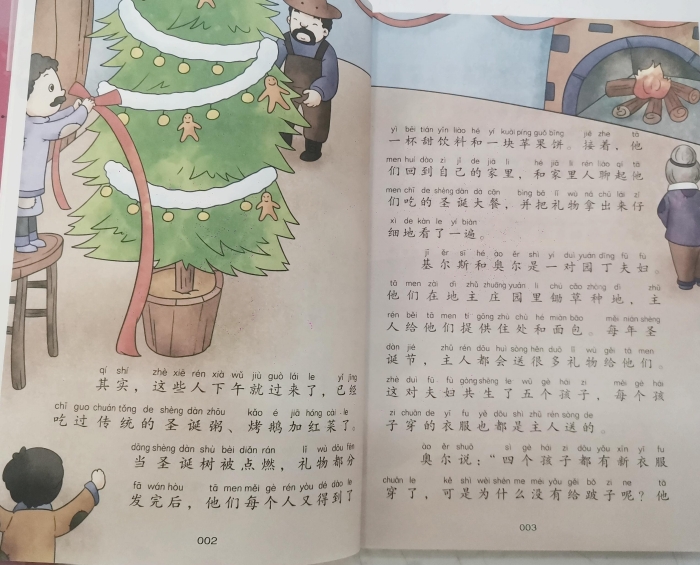 qí shí zhè xiē rén xià wǔ jiù guò lái le yǐ jīng
其实，这些人下午就过来了，已经
chī guo chuán tǒng de shèng dàn zhōu kǎo é jiā hóng cài le
吃过传统的圣诞粥、烤鹅加红菜了。
dāng shèng dàn shù bèi diǎn rán lǐ wù dōu fēn
当圣诞树被点燃，礼物都分
fā wán hòu tā men měi gè rén yòu dé dào le
发完后，他们每个人又得到了
002
yì bēi tián yǐn liào hé yí kuài píng guǒ bǐng jiē zhe tā
一杯甜饮料和一块苹果饼。接着，他
men huí dào zì jǐ de jiā lǐ hé jiā lǐ rén liáo qǐ tā
们回到自己的家里，和家里人聊起他
men chī de shèng dàn dà cān bìng bǎ lǐ wù ná chū lái zǐ
们吃的圣诞大餐，并把礼物拿出来仔
xì de kàn le yí biàn
细地看了一遍。
jī ěr sī hé ào ěr shì yí duì yuán dīng fū fù
基尔斯和奥尔是一对园丁夫妇。
tā men zài dì zhǔ zhuāng yuán lǐ chú cǎo zhòng dì zhǔ
他们在地主庄园里锄草种地，主
rén gěi tā men tí gōng zhù chù hé miàn bāo měi nián shèng
人给他们提供住处和面包。每年圣
dàn jié zhǔ rén dōu huì sòng hěn duō lǐ wù gěi tā men
诞节，主人都会送很多礼物给他们。
zhè duì fū fù gòng shēng le wǔ gè hái zi měi gè hái
这对夫妇共生了五个孩子，每个孩
zi chuān de yī fu yě dōu shì zhǔ rén sòng de
子穿的衣服也都是主人送的。
ào ěr shuō sì gè hái zi dōu yǒu xīn yī fu
奥尔说：“四个孩子都有新衣服
chuān le kě shì wèi shén me méi yǒu gěi bǒ zi ne tā
穿了，可是为什么没有给跛子呢？他
003